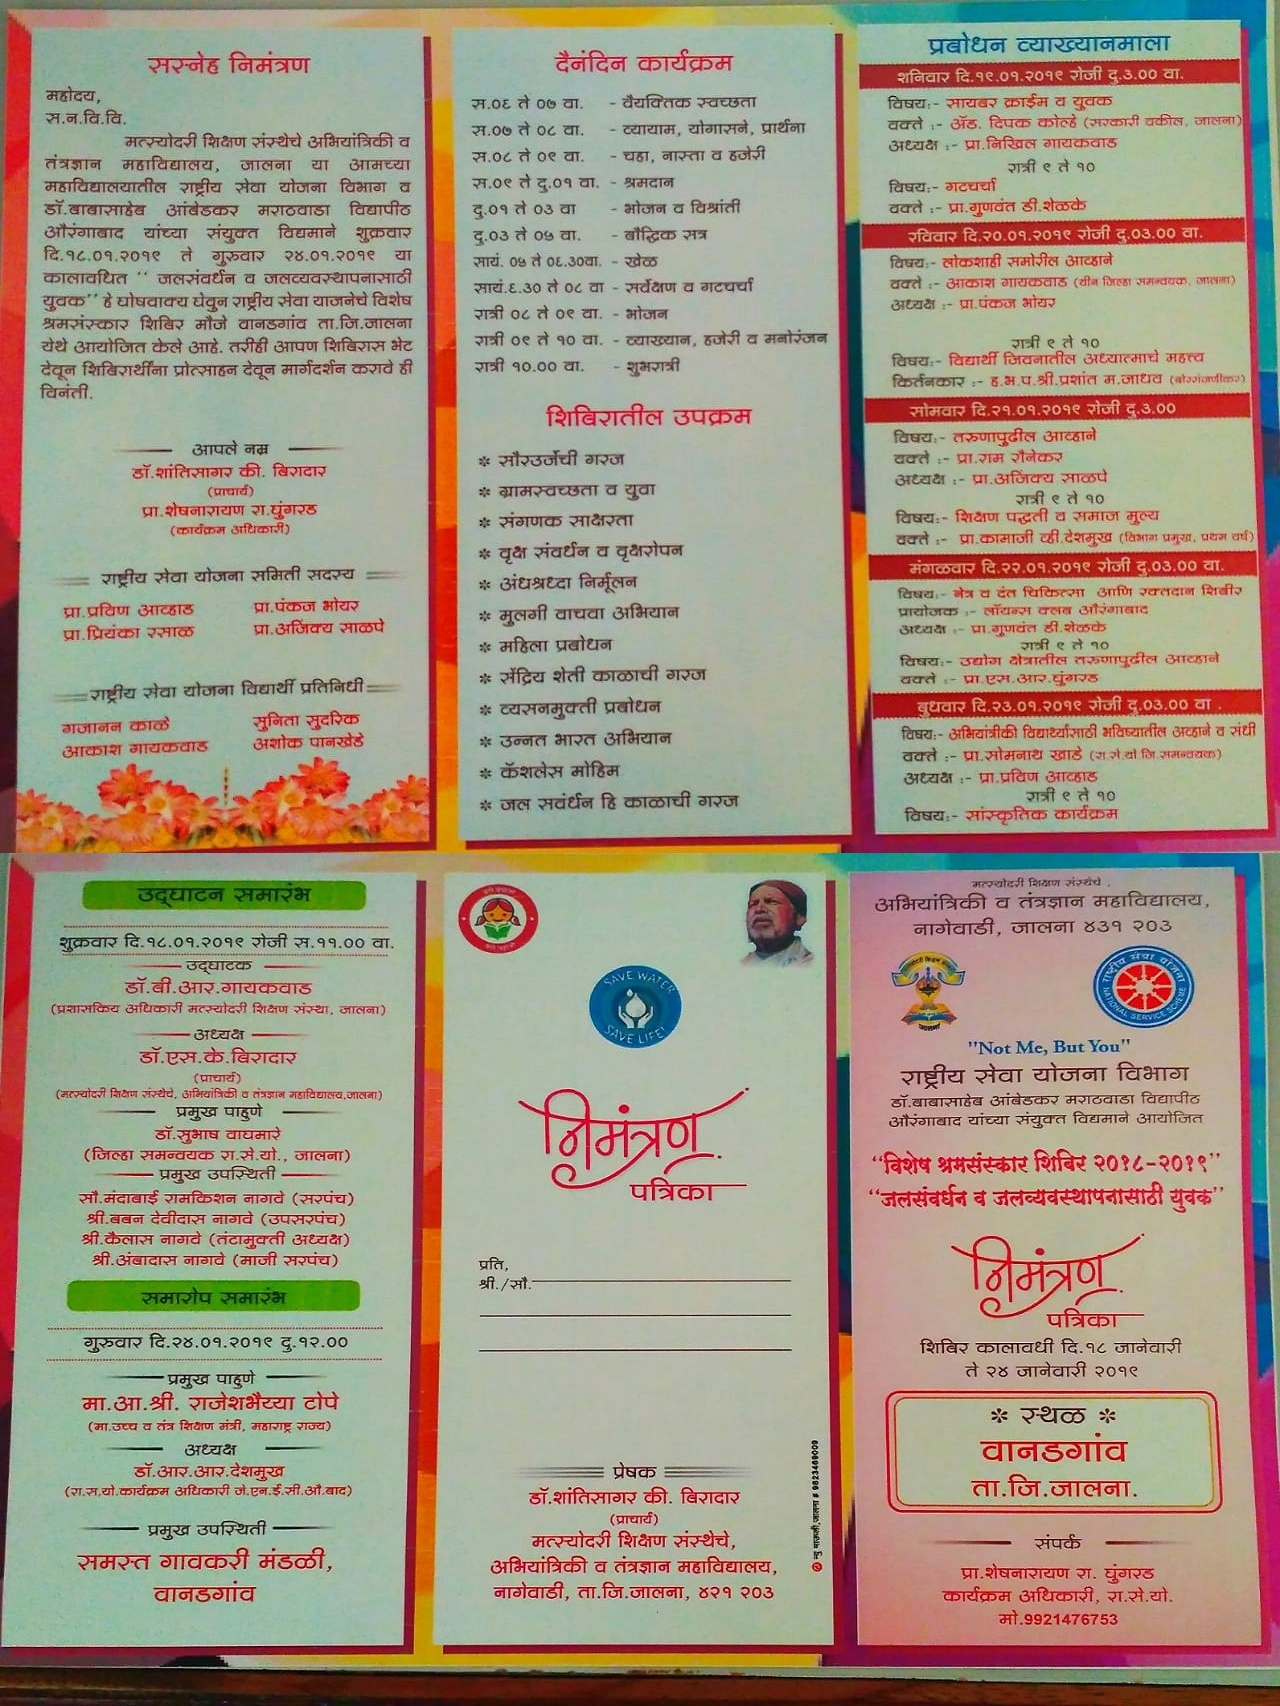 सस्नेह निमंत्रण
महोदय,
स.न.वि.वि.
मत्स्योदरी शिक्षण संस्थेचे अभियांत्रिकी व
तंत्रज्ञान महाविद्यालय, जालना या आमच्या
महाविद्यालयातील राष्ट्रीय सेवा योजना विभाग व
डॉ.बाबासाहेब आंबेडकर मराठवाडा विद्यापीठ
औरंगाबाद यांच्या संयुक्त विद्यमाने शुक्रवार
दि.१८.०१.२०१९ ते गुरुवार २४.०१.२०१९ या
कालावधित '' जलसंवर्धन व जलव्यवस्थापनासाठी
युवक'' हे घोषवाक्य घेवुन राष्ट्रीय सेवा याजनेचे विशेष
श्रमसंस्कार शिबिर मौजे वानडगांव ता.जि.जालना
येथे आयोजित केले आहे. तरीही आपण शिबिरास भेट
देवून शिबिरार्थींना प्रोत्साहन देवून मार्गदर्शन करावे ही
विनंती.
आपले नम्र
डॉ.शांतिसागर की. बिरादार
(प्राचार्य)
प्रा.शेषनारायण रा.घुंगरड
(कार्यक्रम अधिकारी)
राष्ट्रीय सेवा योजना समिती सदस्य
प्रा.प्रविण आव्हाड प्रा.पंकज भोयर
प्रा.प्रियंका रसाळ प्रा.अजिंक्य साळपे
राष्ट्रीय सेवा योजना विद्यार्थी प्रतिनिधी
गजानन काळे सुनिता सुदरिक
आकाश गायकवाड अशोक पानखेडे
दैनंदिन कार्यक्रम
स.०६ ते ०७ वा. - वैयक्तिक स्वच्छता
स.०७ ते ०८ वा. - व्यायाम, योगासने, प्रार्थना
स.०८ ते ०९ वा. - चहा, नास्ता व हजेरी
स.०९ ते दु.०१ वा. - श्रमदान
दु.०१ ते ०३ वा - भोजन व विश्रांती
दु.०३ ते ०५ वा. - बौद्धिक सत्र
सायं. ०५ ते ०६.३०वा. - खेळ
सायं.६.३० ते ०८ वा - सर्वेक्षण व गटचर्चा
रात्री ०८ ते ०९ वा. - भोजन
रात्री ०९ ते १० वा. - व्याख्यान, हजेरी व मनोरंजन
रात्री १०.०० वा. - शुभरात्री
शिबिरातील उपक्रम
* सौरउर्जेची गरज
* ग्रामस्वच्छता व युवा
* संगणक साक्षरता
* वृक्ष संवर्धन व वृक्षरोपन
* अंधश्रध्दा निर्मूलन
* मुलगी वाचवा अभियान
* महिला प्रबोधन
* सेंद्रिय शेती काळाची गरज
* व्यसनमुक्ती प्रबोधन
* उन्नत भारत अभियान
* कॅशलेस मोहिम
* जल सवंर्धन हि काळाची गरज
प्रबोधन व्याख्यानमाला
शनिवार दि.१९.०१.२०१९ रोजी दु.3.00 वा.
विषय:- सायबर क्राईम व युवक
वक्ते :- ॲड. दिपक कोल्हे (सरकारी वकील, जालना)
अध्यक्ष :- प्रा.निखिल गायकवाड
रात्री ९ ते १०
विषय:- गटचर्चा
वक्ते :- प्रा.गुणवंत डी.शेळके
रविवार दि.२०.०१.२०१९ रोजी दु.०3.00 वा.
विषय:- लोकशाही समोरील आव्हाने
वक्ते :- आकाश गायकवाड (यीन जिल्हा समन्वयक, जालना)
अध्यक्ष :- प्रा.पंकज भोयर
रात्री ९ ते १०
विषय:- विद्यार्थी जिवनातील अध्यात्माचे महत्त्व
किर्तनकार :- ह.भ.प.श्री.प्रशांत म.जाधव (बोररांजणीकर)
सोमवार दि.२१.०१.२०१९ रोजी दु.3.00
विषय:- तरुणापुढील आव्हाने
वक्ते :- प्रा.राम रौनेकर
अध्यक्ष :- प्रा.अजिंक्य साळपे
रात्री ९ ते १०
विषय:- शिक्षण पद्धती व समाज मुल्य
वक्ते :- प्रा.कामाजी व्ही.देशमुख (विभाग प्रमुख, प्रथम वर्ष)
मंगळवार दि.२२.०१.२०१९ रोजी दु.०3.00 वा.
विषय:- नेत्र व दंत चिकित्सा आणि रक्तदान शिबीर
प्रायोजक :- लॉयन्स क्लब औरंगाबाद
अध्यक्ष :- प्रा.गुणवंत डी.शेळके
रात्री ९ ते १०
विषय:- उद्योग क्षेत्रातील तरुणापुढील आव्हाने
वक्ते :- प्रा.एस.आर.घुंगरड
बुधवार दि.२3.०१.२०१९ रोजी दु.०3.00 वा .
विषय:- अभियांत्रीकी विद्यार्थ्यासाठी भविष्यातील अव्हाने व संधी
वक्ते :- प्रा.सोमनाथ खाडे (रा.से.यो जि.समन्वयक)
अध्यक्ष :- प्रा.प्रविण आव्हाड
रात्री ९ ते १०
विषय:- सांस्कृतिक कार्यक्रम
उद्घाटन समारंभ
शुक्रवार दि.१८.०१.२०१९ रोजी स.११.०० वा.
उद्घाटक
डॉ.बी.आर.गायकवाड
(प्रशासकिय अधिकारी मत्स्योदरी शिक्षण संस्था, जालना)
अध्यक्ष
डॉ.एस.के.बिरादार
(प्राचार्य)
(मत्स्योदरी शिक्षण संस्थेचे, अभियांत्रिकी व तंत्रज्ञान महाविद्यालय,जालना)
प्रमुख पाहुणे
डॉ.सुभाष वाघमारे
(जिल्हा समन्वयक रा.से.यो., जालना)
प्रमुख उपस्थिती
सौ.मंदाबाई रामकिशन नागवे (सरपंच)
श्री.बबन देवीदास नागवे (उपसरपंच)
श्री.कैलास नागवे (तंटामुक्ती अध्यक्ष)
श्री.अंबादास नागवे (माजी सरपंच)
समारोप समारंभ
गुरुवार दि.२४.०१.२०१९ दु.१२.००
प्रमुख पाहुणे
मा.आ.श्री. राजेशभैय्या टोपे
(मा.उच्च व तंत्र शिक्षण मंत्री, महाराष्ट्र राज्य)
अध्यक्ष
डॉ.आर.आर.देशमुख
(रा.स.यो.कार्यक्रम अधिकारी जे.एन.ई.सी.औ.बाद)
प्रमुख उपस्थिती
समस्त गावकरी मंडळी,
वानडगांव
SAVE WATER
SAVE LIFE!
निमंत्रण
पत्रिका
प्रति,
श्री./सौ.
प्रेषक
डॉ.शांतिसागर की. बिरादार
(प्राचार्य)
मत्स्योदरी शिक्षण संस्थेचे,
अभियांत्रिकी व तंत्रज्ञान महाविद्यालय,
नागेवाडी, ता.जि.जालना, ४२१ २०3
# 9823469009
मत्स्योदरी शिक्षण संस्थेचे .
अभियांत्रिकी व तंत्रज्ञान महाविद्यालय,
नागेवाडी, जालना ४३१ २०३
जालना
राष्ट्रीय सेवा योजना
NATIONAL SERVICE SCHEME
"Not Me, But You"
राष्ट्रीय सेवा योजना विभाग
डॉ.बाबासाहेब आंबेडकर मराठवाडा विद्यापीठ
औरंगाबाद यांच्या संयुक्त विद्यमाने आयोजित
“विशेष श्रमसंस्कार शिबिर २०१८-२०१९”
“जलसंवर्धन व जलव्यवस्थापनासाठी युवक”
निमंत्रण
पत्रिका
शिबिर कालावधी दि.१८ जानेवारी
ते २४ जानेवारी २०१९
* स्थळ *
वानडगांव
ता.जि.जालना.
संपर्क
प्रा.शेषनारायण रा. घुंगरड
कार्यक्रम अधिकारी, रा.से.यो.
मो.9921476753